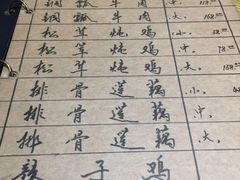 铜瓢牛肉 大. 158.00
松茸炖鸡 小. 58.00
松茸炖鸡 中.
松茸炖鸡 大.
排骨莲藕 小. 48
排骨莲藕 中.
排骨莲藕 大.
子鸡